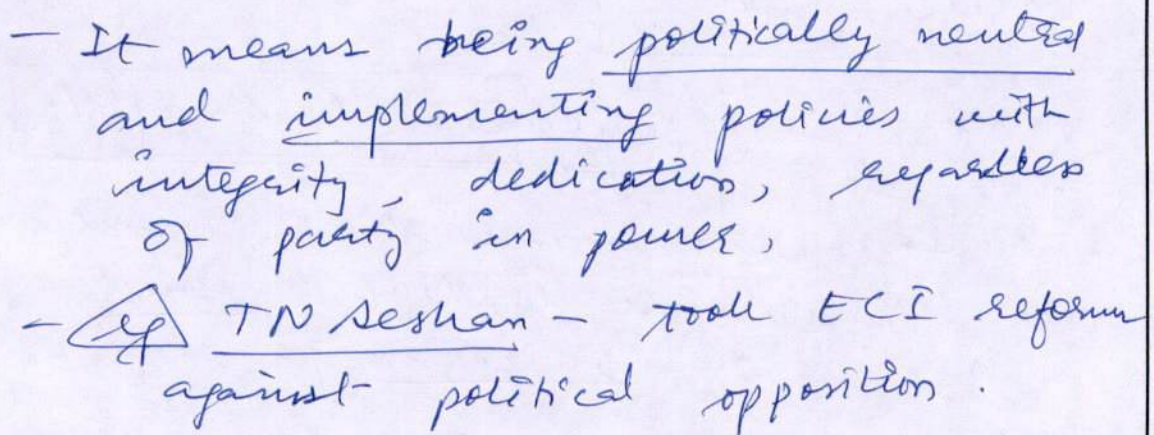 - It means being politically neutral
and implementing policies with
integrity, dedication, regardless
of party in power,
- eg TN Seshan - took ECI reforms
against political opposition.